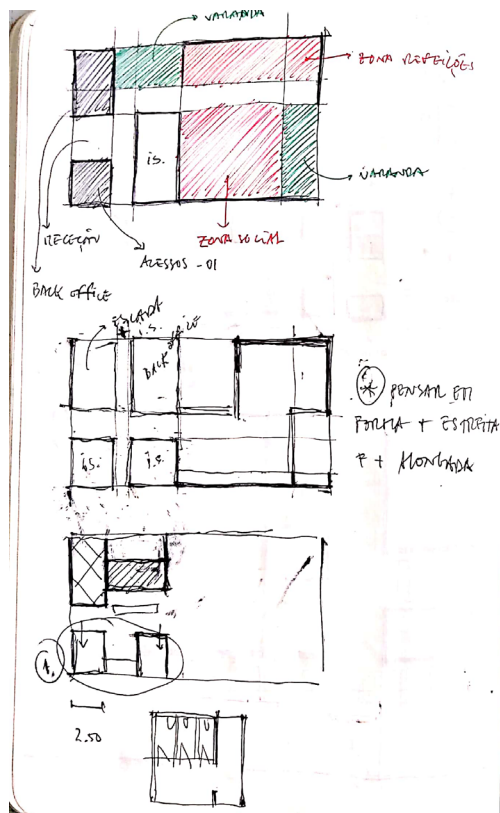 VARANDA
ZONA REFEIÇÕES
i.s.
VARANDA
RECEÇÃO
ZONA SOCIAL
ACESSOS -01
BACK OFFICE
ESCADA
i.s.
BACK OFFICE
PENSAR EM
FORMA + ESTREITA
E + ALONGADA
i.s.
i.s.
1.
2.50